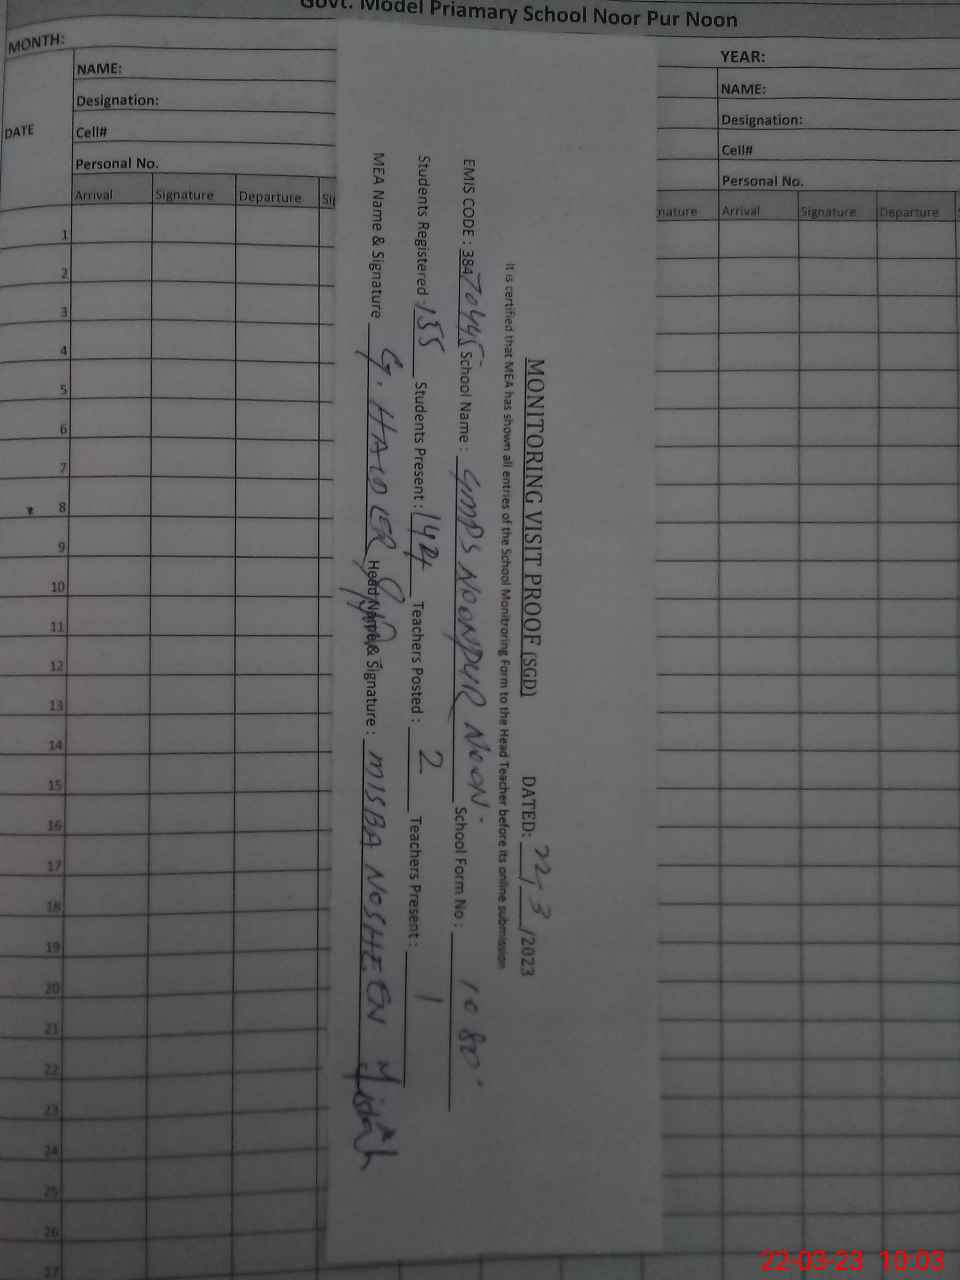 Govt. Model Priamary School Noor Pur Noon
MONTH:
YEAR:
NAME:
NAME:
Designation:
Designation:
DATE
Cell#
Cell#
Personal No.
Personal No.
Arrival Signature Departure
nature Arrival Signature Departure
1
2
3
4
5
6
7
8
9
10
11
12
13
14
15
16
17
18
19
20
21
22
23
24
25
26
27
MONITORING VISIT PROOF (SGD) DATED: 22/3/2023
It is certified that MEA has shown all entries of the School Monitroring Form to the Head Teacher before its online submission
EMIS CODE : 38470445 School Name : GMPS NOONPUR NOON. School Form No :
Students Registered : 155 Students Present : 142 Teachers Posted : 2 Teachers Present : 1
MEA Name & Signature G. HAIDER Head Name & Signature : MISBA NOSHEEN Misbah
22-03-23 10:03